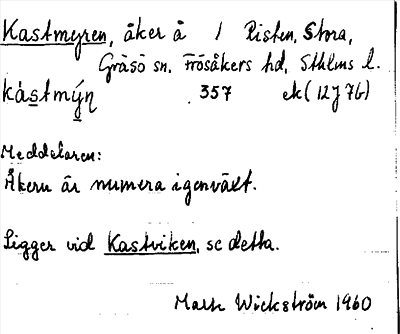 Kastmyren, åker å 1 Risten, Stora,
Gräsö sn, Frösåkers hd, Sthlms l.
kástmýn 357 ek (12J7b)
Meddelaren:
Åkern är numera igenväxt.
Ligger vid Kastviken, se detta.
Wickström 1960